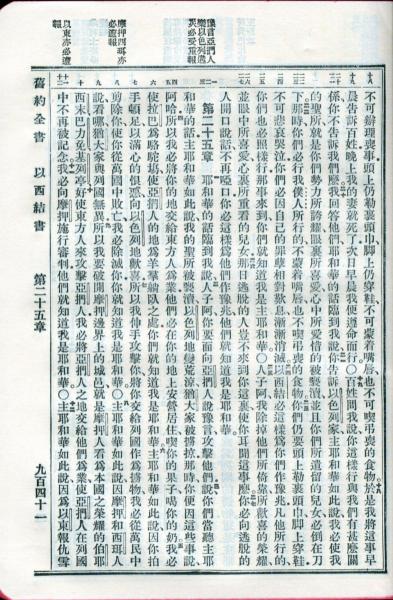 不可辦理喪事頭上仍勒裹頭巾脚上仍穿鞋不可蒙着嘴唇也不可喫弔喪的食物於是我將這事早
晨告訴百姓晚上我的妻就死了次日早晨我便遵命而行○百姓問我說你這樣行與我們有甚麼關
係你不告訴我們麼我回答他們耶和華的話臨到我說你告訴以色列家主耶和華如此說我必使我
的聖所就是你們勢力所誇耀眼裏所喜愛心中所愛惜的被褻瀆並且你們所遺留的兒女必倒在刀
下那時你們必行我僕人所行的不蒙着嘴唇也不喫弔喪的食物你們仍要頭上勒裹頭巾脚上穿鞋
不可悲哀哭泣你們必因自己的罪孽相對歎息漸漸消滅以西結必這樣爲你們作豫兆凡他所行的
你們也必照樣行那事來到你們就知道我是主耶和華○人子阿我除掉他們所倚靠所歡喜的榮耀
並眼中所喜愛心裏所重看的兒女那日逃脫的人豈不來到你這裏使你耳聞這事麼你必向逃脫的
人開口說話不再啞口你必這樣爲他們作豫兆他們就知道我是耶和華
豫言亞捫人
樂以色列遇
災必受重報
第二十五章 耶和華的話臨到我說人子阿你要面向亞捫人說豫言攻擊他們說你們當聽主耶
和華的話主耶和華如此說我的聖所被褻瀆以色列地變荒涼猶大家被擄掠那時你便因這些事說
阿哈所以我必將你的地交給東方人爲業他們必在你的地上安營居住喫你的果子喝你的奶我必
使拉巴爲駱駝場使亞捫人的地爲羊羣躺臥之處你們就知道我是耶和華主耶和華如此說因你拍
手頓足以滿心的恨惡向以色列地歡喜所以我伸手攻擊你將你交給列國作爲擄物我必從萬民中
摩押西珥亦
必遭報
剪除你使你從萬國中敗亡我必除滅你你就知道我是耶和華○主耶和華如此說因摩押和西珥人
說看哪猶大家與列國無異所以我要破開摩押邊界上的城邑就是摩押人看爲本國之榮耀的伯耶
西末巴力免基列亭好使東方人來攻擊亞捫人我必將亞捫人之地交給他們爲業使亞捫人在列國
以東亦必遭
報
中不再被記念我必向摩押施行審判他們就知道我是耶和華○主耶和華如此說因爲以東報仇雪
舊約全書 以西結書 第二十五章 九百四十一